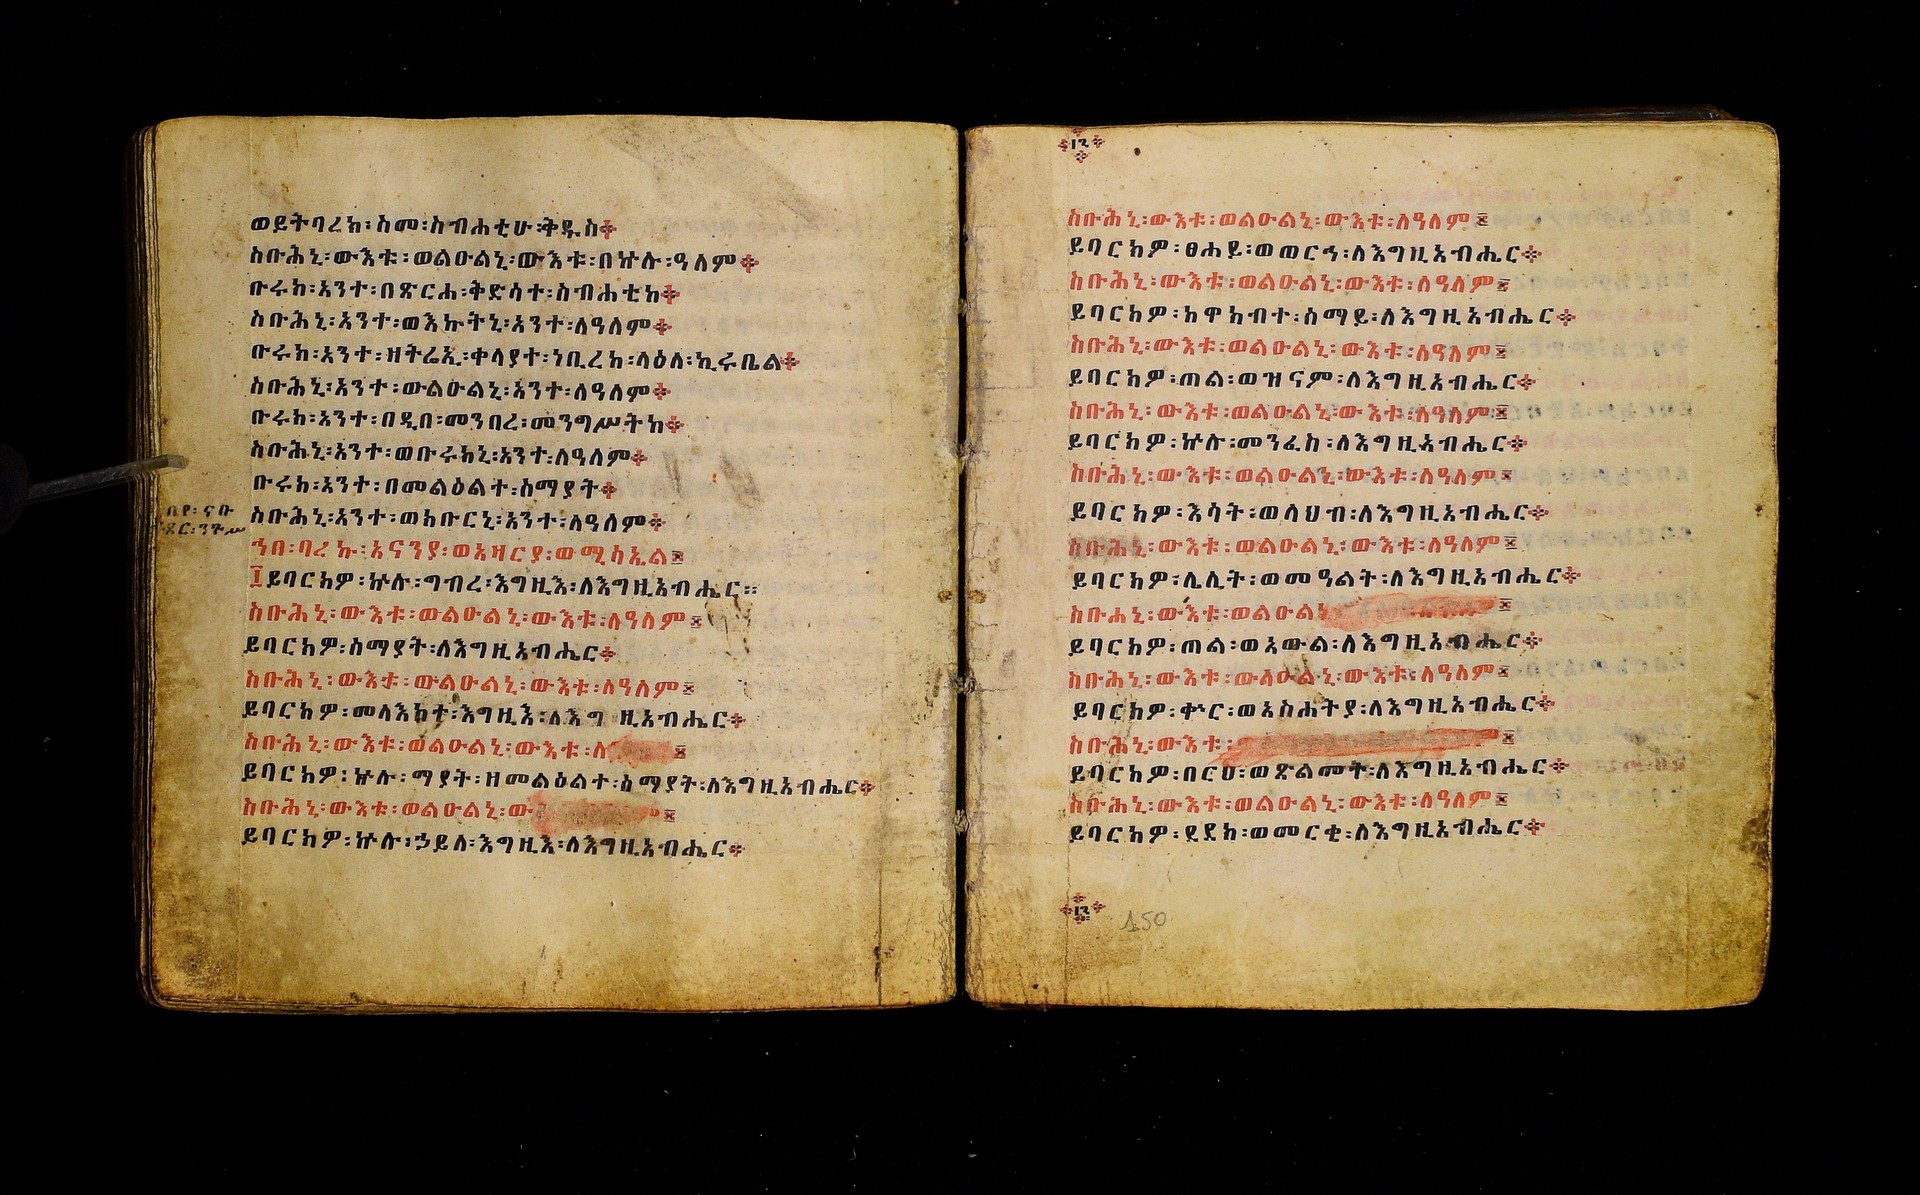 ወይትባረክ፡ስመ፡ስብሐቲሁ፡ቅዱስ፨
ስቡሕኒ፡ውእቱ፡ወልዑልኒ፡ውእቱ፡በኵሉ፡ዓለም፨
ቡሩክ፡አንተ፡በጽርሐ፡ቅድሳተ፡ስብሐቲከ፨
ስቡሕኒ፡አንተ፡ወእኩትኒ፡አንተ፡ለዓለም፨
ቡሩክ፡አንተ፡ዘትሬኢ፡ቀላያተ፡ነቢረከ፡ላዕለ፡ኪሩቤል፨
ስቡሕኒ፡አንተ፡ውልዑልኒ፡አንተ፡ለዓለም፨
ቡሩክ፡አንተ፡በዲበ፡መንበረ፡መንግሥትከ፨
ስቡሕኒ፡አንተ፡ወቡሩክኒ፡አንተ፡ለዓለም፨
ቡሩክ፡አንተ፡በመልዕልተ፡ሰማያት፨
ስቡሕኒ፡አንተ፡ወክቡርኒ፡አንተ፡ለዓለም፨
ኀበ፡ባረኩ፡አናንያ፡ወአዛርያ፡ወሚሳኤል፨
ይባርክዎ፡ኵሉ፡ግብረ፡እግዚእ፡ለእግዚአብሔር።
ስቡሕኒ፡ውእቱ፡ወልዑልኒ፡ውእቱ፡ለዓለም፨
ይባርክዎ፡ሰማያት፡ለእግዚአብሔር፨
ስቡሕኒ፡ውእቱ፡ውልዑልኒ፡ውእቱ፡ለዓለም፨
ይባርክዎ፡መላእክተ፡እግዚእ፡ለእግ ዚአብሔር፨
ስቡሕኒ፡ውእቱ፡ወልዑልኒ፡ውእቱ፡ለ
ይባርክዎ፡ኵሉ፡ማያት፡ዘመልዕልተ፡ሰማያት፡ለእግዚአብሔር፨
ስቡሕኒ፡ውእቱ፡ወልዑልኒ፡ው
ይባርክዎ፡ኵሉ፡ኃይለ፡እግዚእ፡ለእግዚአብሔር፨
፲፪
ስቡሕኒ፡ውእቱ፡ወልዑልኒ፡ውእቱ፡ለዓለም፨
ይባርክዎ፡ፀሐይ፡ወወርኅ፡ለእግዚአብሔር፨
ስቡሕኒ፡ውእቱ፡ወልዑልኒ፡ውእቱ፡ለዓለም፨
ይባርክዎ፡ከዋክብተ፡ሰማይ፡ለእግዚአብሔር፨
ስቡሕኒ፡ውእቱ፡ወልዑልኒ፡ውእቱ፡ለዓለም፨
ይባርክዎ፡ጠል፡ወዝናም፡ለእግዚአብሔር፨
ስቡሕኒ፡ውእቱ፡ወልዑልኒ፡ውእቱ፡ለዓለም፨
ይባርክዎ፡ኵሉ፡መንፈስ፡ለእግዚአብሔር፨
ስቡሕኒ፡ውእቱ፡ወልዑልኒ፡ውእቱ፡ለዓለም፨
ይባርክዎ፡እሳት፡ወላህብ፡ለእግዚአብሔር፨
ስቡሕኒ፡ውእቱ፡ወልዑልኒ፡ውእቱ፡ለዓለም፨
ይባርክዎ፡ሌሊት፡ወመዓልት፡ለእግዚአብሔር፨
ስቡሐኒ፡ውእቱ፡ወልዑልኒ
ይባርክዎ፡ጠል፡ወአውል፡ለእግዚአብሔር፨
ስቡሕኒ፡ውእቱ፡ውልዑልኒ፡ውእቱ፡ለዓለም፨
ይባርክዎ፡ቍር፡ወአስሐትያ፡ለእግዚአብሔር፨
ስቡሕኒ፡ውእቱ፡
ይባርክዎ፡በርህ፡ወጽልመት፡ለእግዚአብሔር፨
ስቡሕኒ፡ውእቱ፡ወልዑልኒ፡ውእቱ፡ለዓለም፨
ይባርክዎ፡ደደክ፡ወመርቄ፡ለእግዚአብሔር፨
፲፪
150